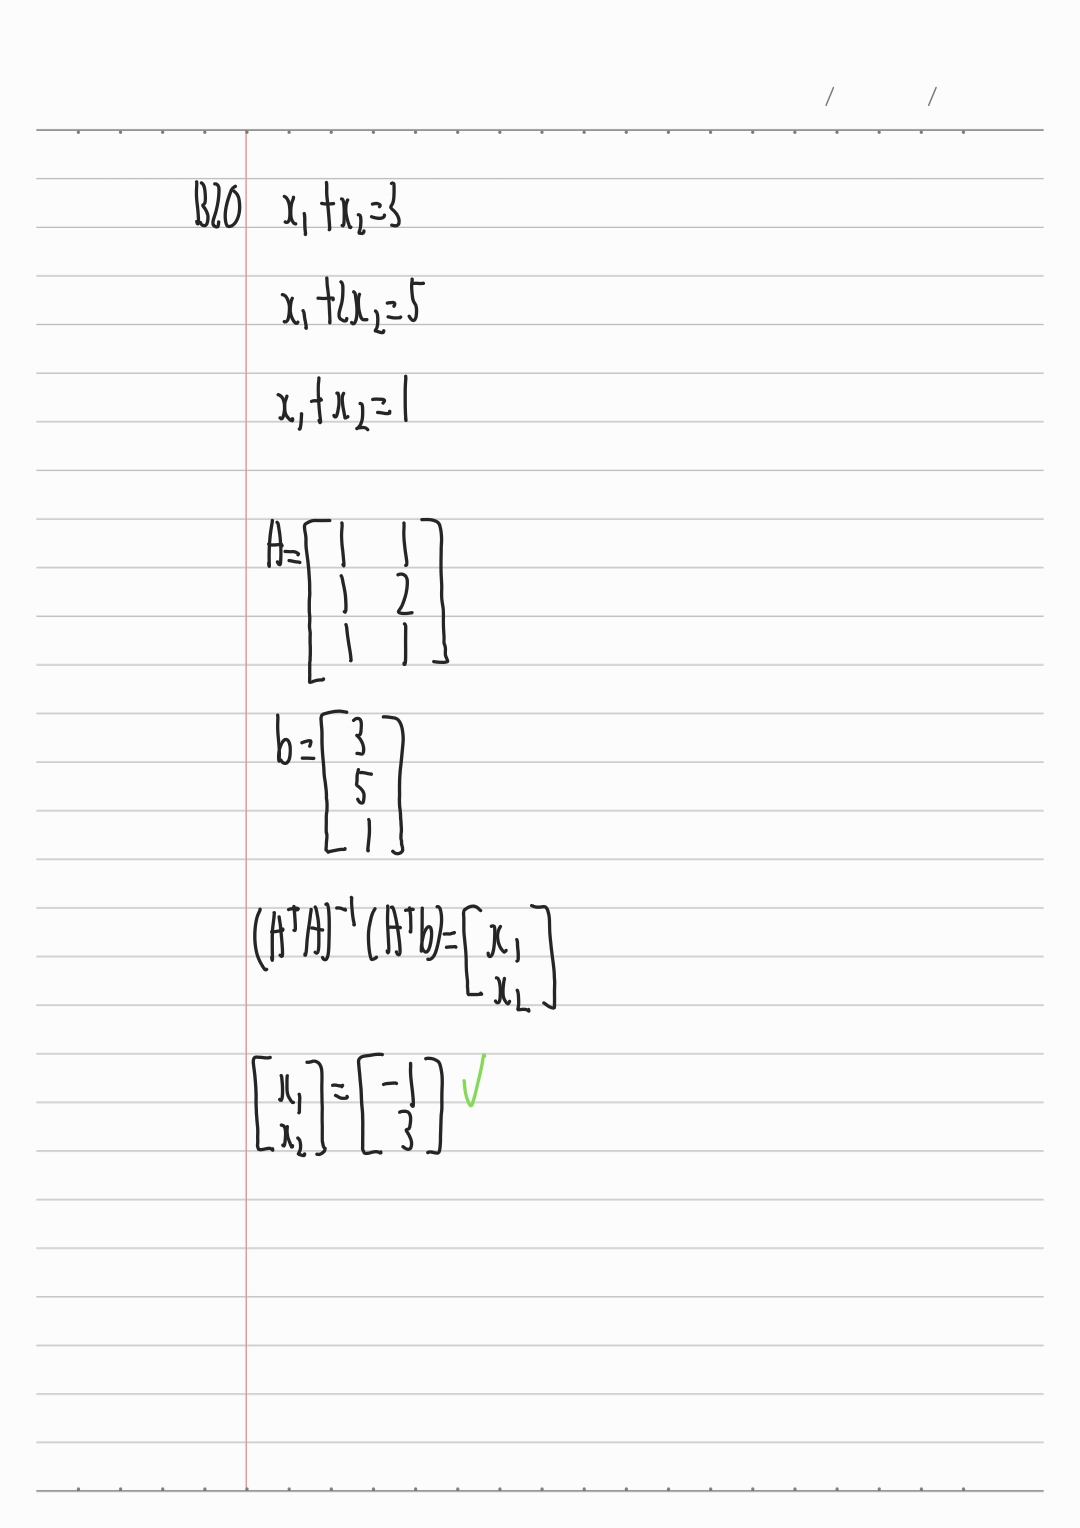 / /
B20 x₁+x₂=3
x₁+2x₂=5
x₁+x₂=1
A=[1 1
1 2
1 1]
b=[3
5
1]
(AᵀA)⁻¹(Aᵀb)=[x₁
x₂]
[x₁
x₂]=[-1
3] ✓